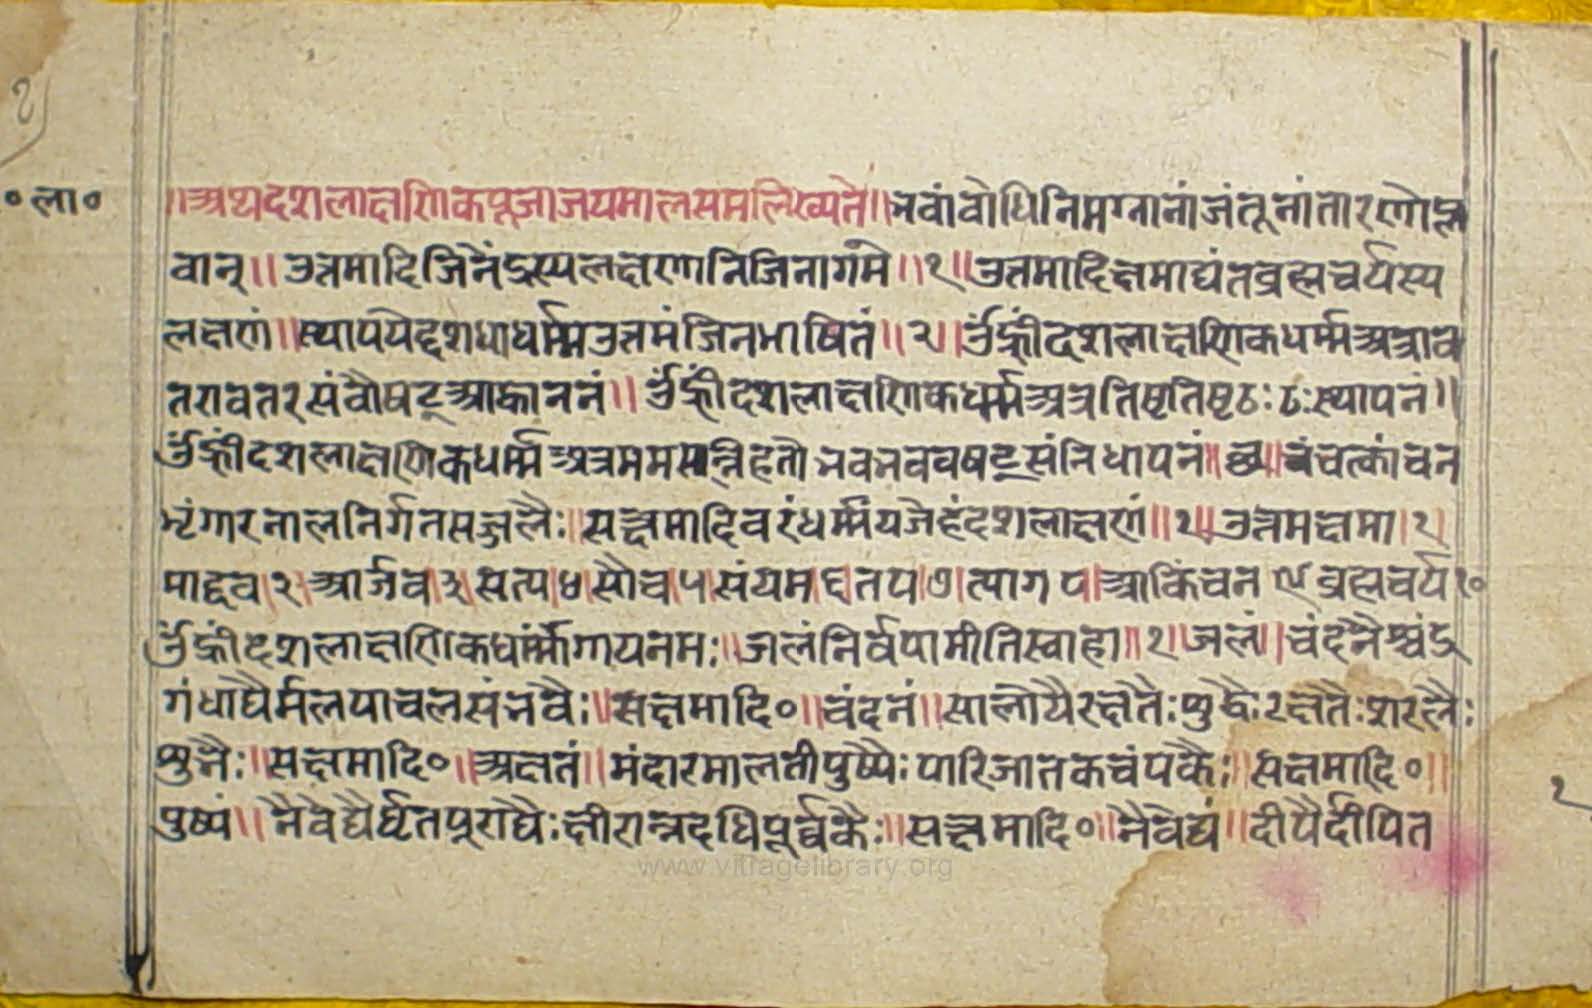 १
०ला०
॥अथदशलाक्षणिकपूजाजयमालसमलिख्यते॥भवांवोधिनिमग्नानांजंतूनांतारणोह्न
वान्॥उत्तमादिजिनेंद्रस्यलक्षणानिजिनागमे॥१॥उत्तमादिक्षमाद्यंतव्रह्मचर्यस्य
लक्षणं॥स्थापयेद्दशधाधर्म्मउत्तमंजिनभाषितं॥२॥ॐह्रींदशलाक्षणिकधर्म्मअत्राव
तरावतरसंवौषट्आह्वाननं॥ॐह्रींदशलाक्षणिकधर्म्मअत्रतिष्टतिष्टठःठःस्थापनं॥
ॐह्रींदशलाक्षणिकधर्म्मअत्रममसन्निहतोभवभववषट्संनिधापनं॥छ॥चंचत्कांचन
भृंगारनालनिर्गतसज्जलैः॥सत्क्षमादिवरंधर्म्मंयजेहंदशलाक्षणं॥१॥उत्तमक्षमा।१।
मार्द्दव।२।आर्जव।३।सत्य।४।सौच।५।संयम।६।तप।७।त्याग८।आकिंचन९व्रह्मचर्य१०
ॐह्रींदशलाक्षणिकधर्म्मांगायनमः॥जलंनिर्वपामीतिस्वाहा॥१।जलं॥चंदनैश्चंद्र
गंधाद्यैर्मलयाचलसंभवैः॥सत्क्षमादि०॥चंदनं॥सालीयैरक्षतैः शुद्धैःरक्षतैःशरलैः
शुभैः॥सत्क्षमादि०॥अक्षतं॥मंदारमालतीपुष्पैःपारिजातकचंपकैः॥सत्क्षमादि०॥
पुष्पं॥नैवेद्यैर्घृतपूराद्यैःक्षीरान्नदधिपूर्व्वकैः॥सत्क्षमादि०॥नैवेद्यं॥दीपैर्दीपित
१
www.vitragelibrary.org